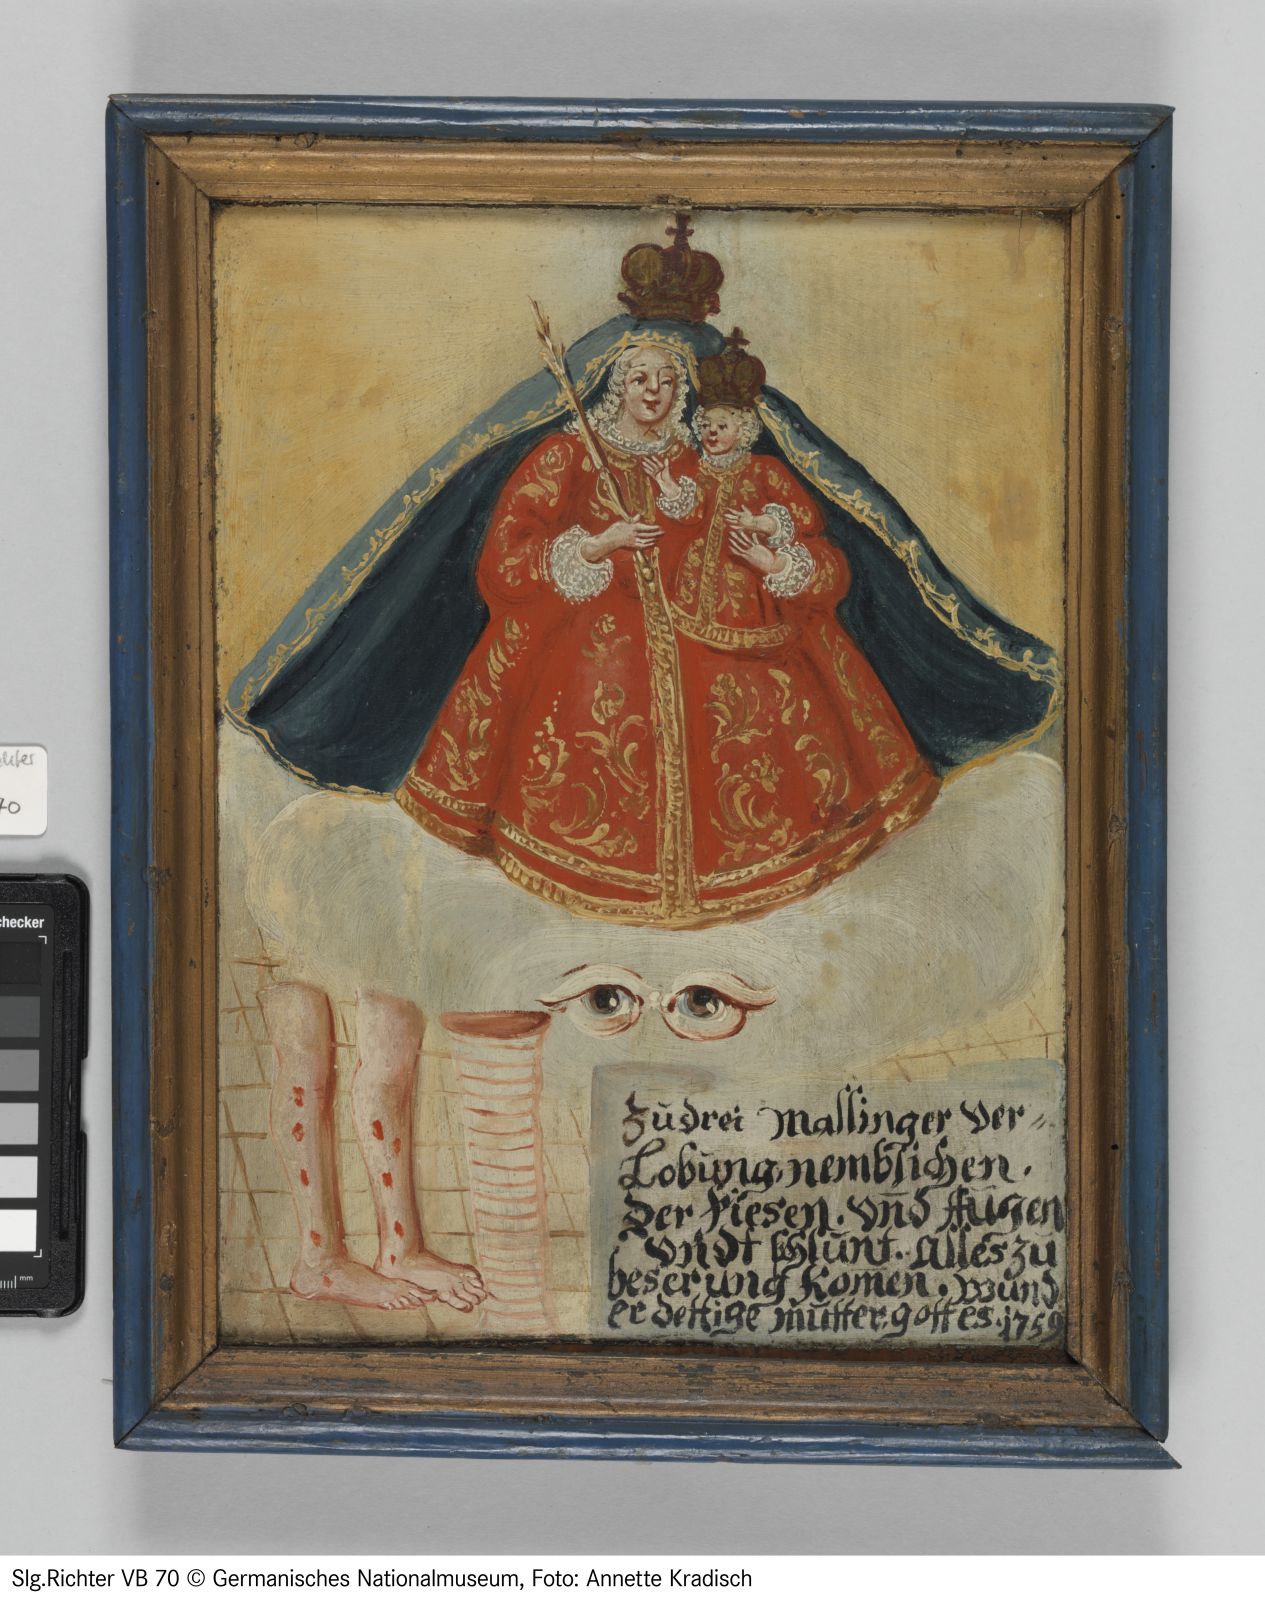 Zu drei Mallinger Ver=
Lobung, nemblichen.
Der fiesen. Vnd Augen
Vndt schlunt. Alles zu
beserung Komen. wund
er dettige mutter gottes. 1759
checker
mm
70
Slg.Richter VB 70 © Germanisches Nationalmuseum, Foto: Annette Kradisch